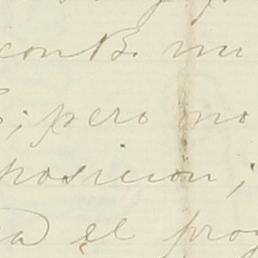 con B. mi
; pero no
posicion;
a el pro